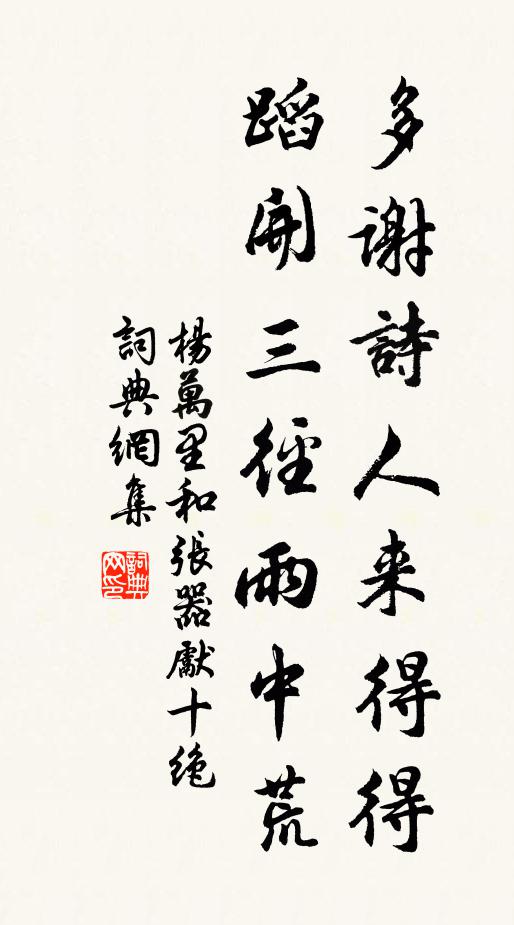 多謝詩人来得得
蹈開三徑雨中荒
楊萬里和張器獻十绝
詞典網集
詞典网印